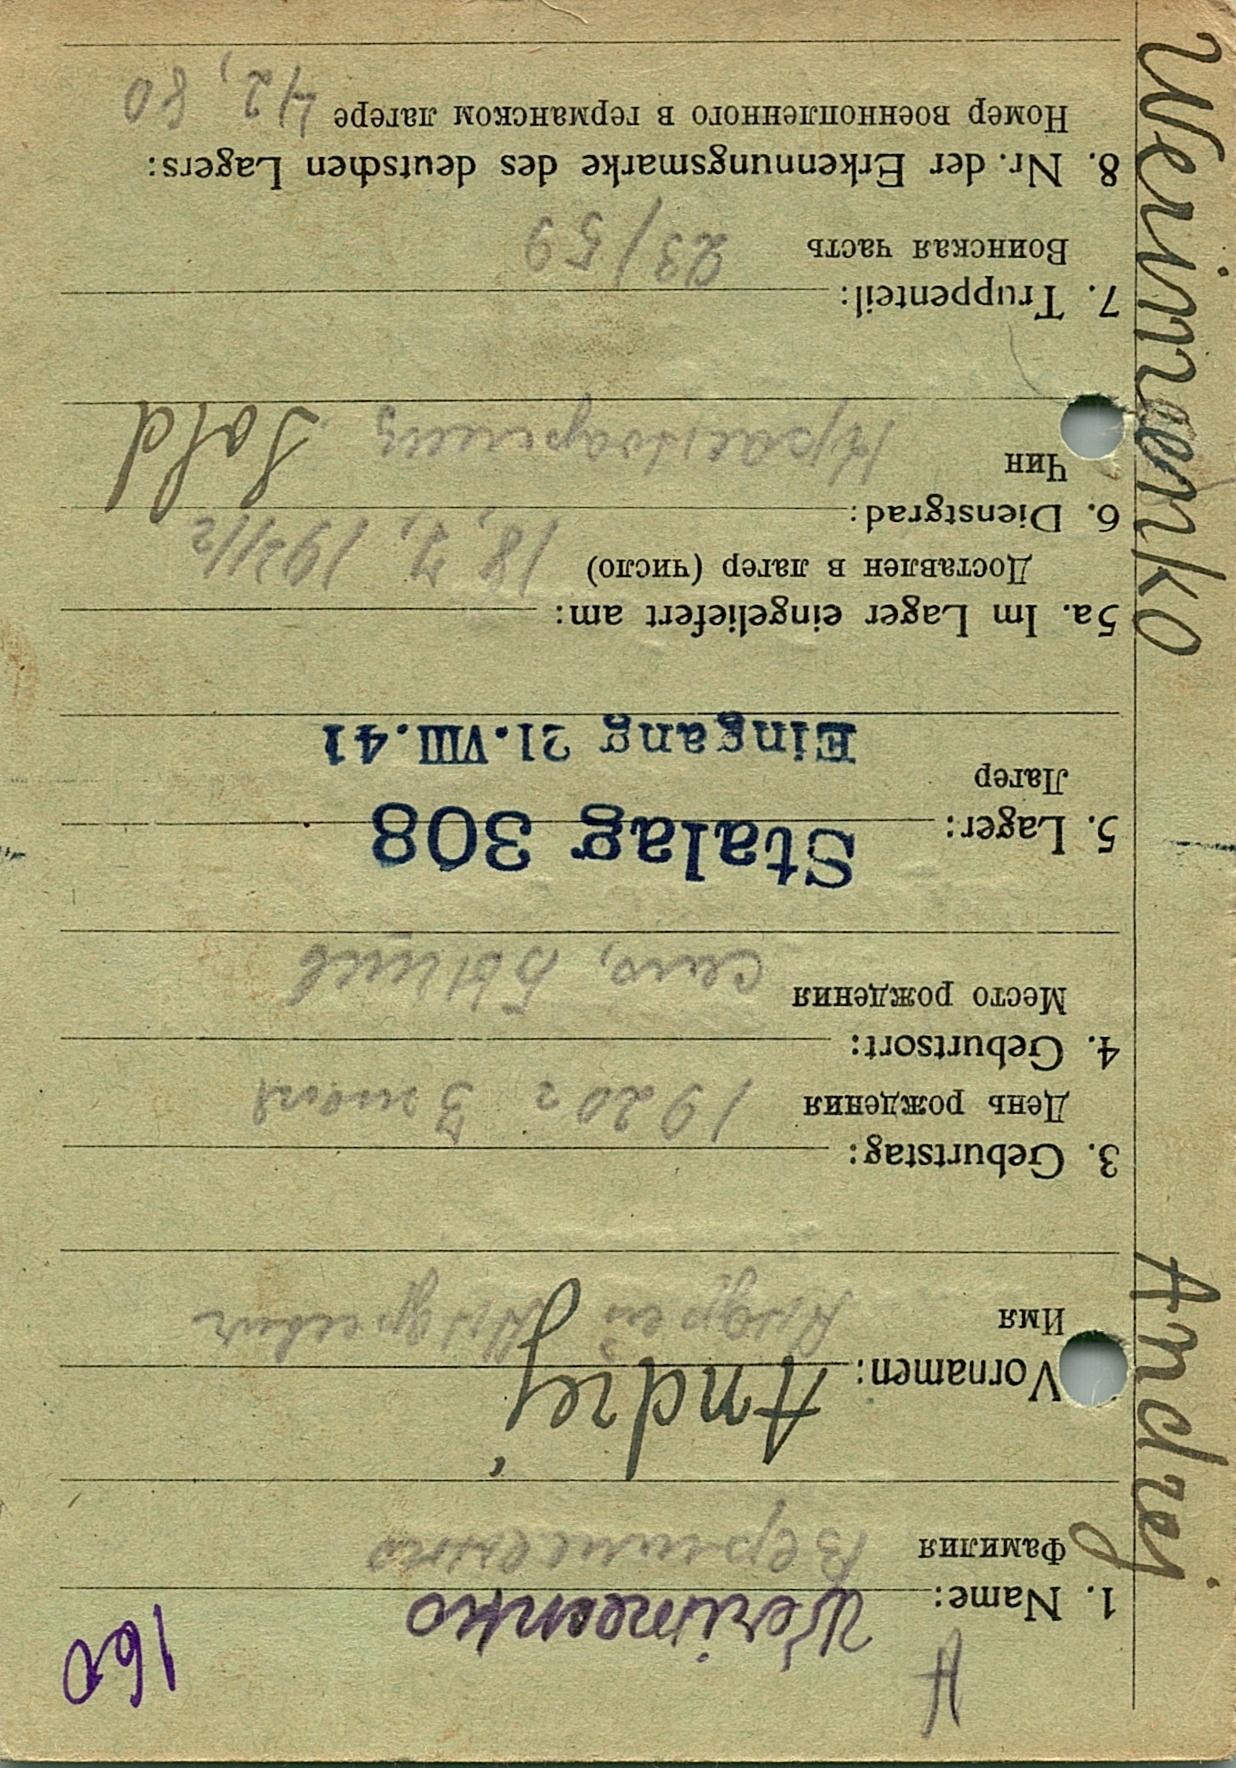 A
160
Werimeenko
1. Name:
Фамилия Веримеенко
Andrej
Vornamen:
Имя Андрей Андреевич
3. Geburtstag:
День рождения 1920 г 3 мая
4. Geburtsort:
Место рождения село,
Stalag 308
5. Lager:
Лагер
Eingang 21.VIII.41
5a. Im Lager eingeliefert am:
Доставлен в лагер (число) 18, 7, 1941
6. Dienstgrad:
Чин Красноармеец Sold
7. Truppenteil:
Воинская часть 23/59
8. Nr. der Erkennungsmarke des deutschen Lagers:
Номер военнопленного в германском лагере 42, 80
Werimeenko Andrej